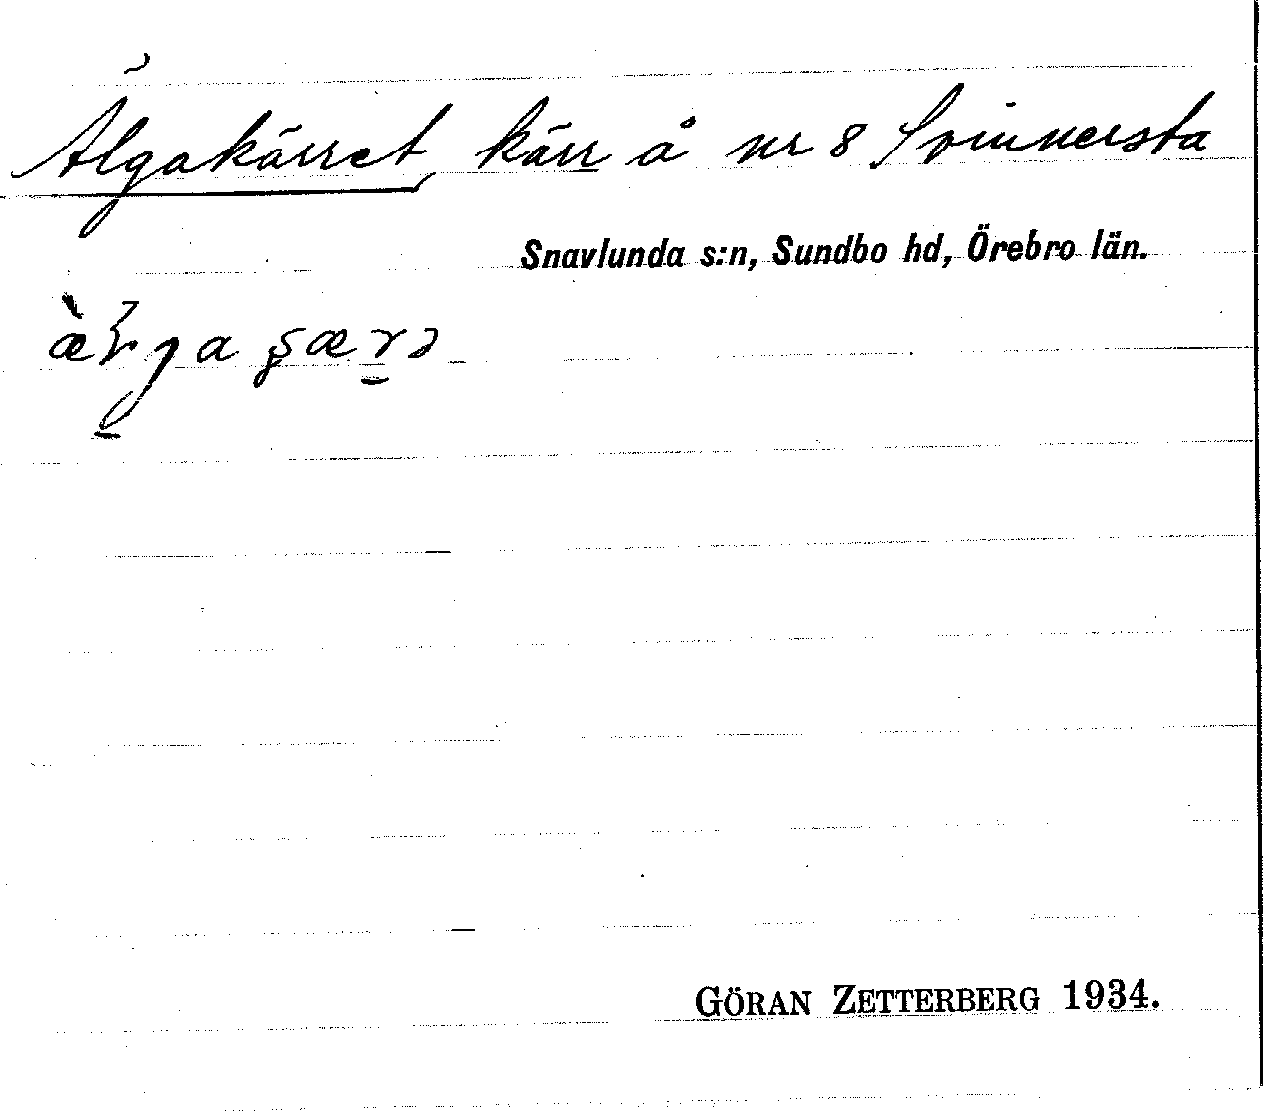 Älgakärret, kärr å nr 8 Svinnersta
Snavlunda s:n, Sundbo hd, Örebro län.
GÖRAN ZETTERBERG 1934.